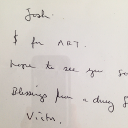 Josh.
$ for ART.
Hope to see you so
Blessings from a
Victor.